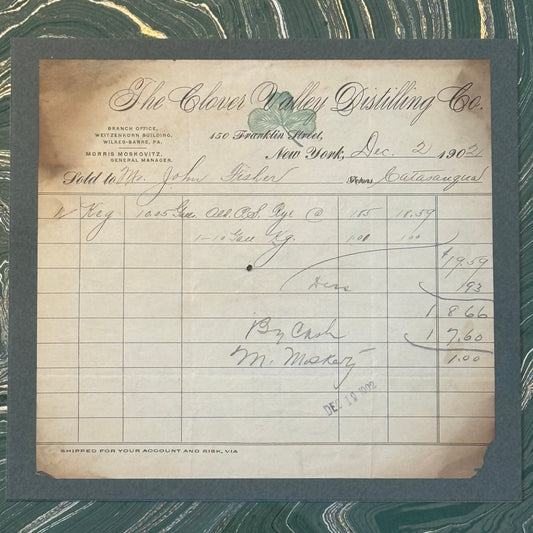 The Clover Valley Distilling Co.
BRANCH OFFICE,
WEITZENKORN BUILDING,
WILKES-BARRE, PA.
150 Franklin Street,
MORRIS MOSKOVITZ,
GENERAL MANAGER.
New York, Dec. 2 1902
Sold to Mr. John Fisher Catasauqua
Keg 10.05 Gall Rye @ 1.85 18.59
1-10 Gall Kg. 1.00 1.00
$19.59
193
1 8 66
By Cash 1 7.60
M. 1.00
DEC 19 1902
SHIPPED FOR YOUR ACCOUNT AND RISK, VIA